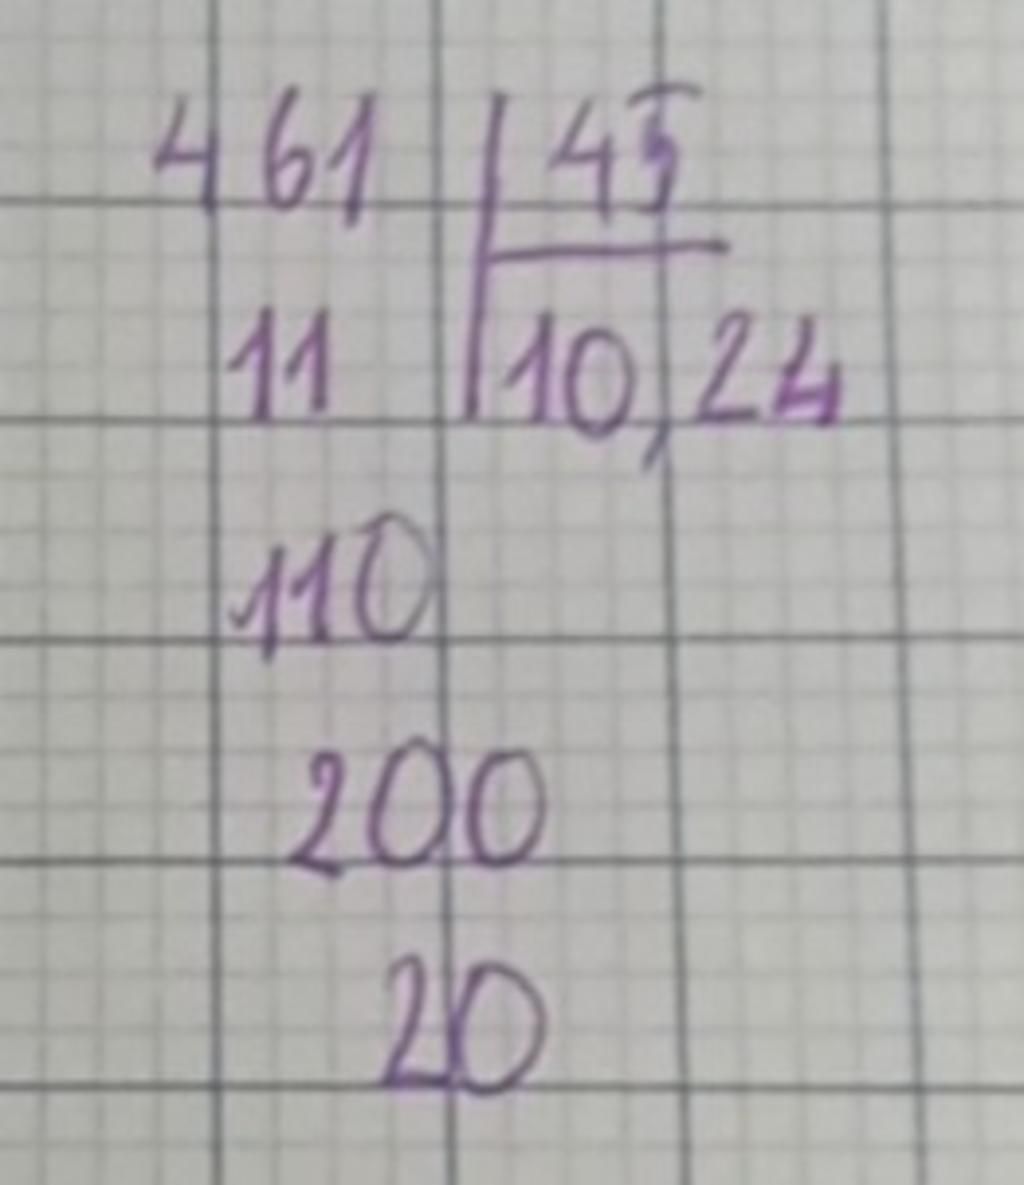 461 | 45
11 | 10,24
110
200
20